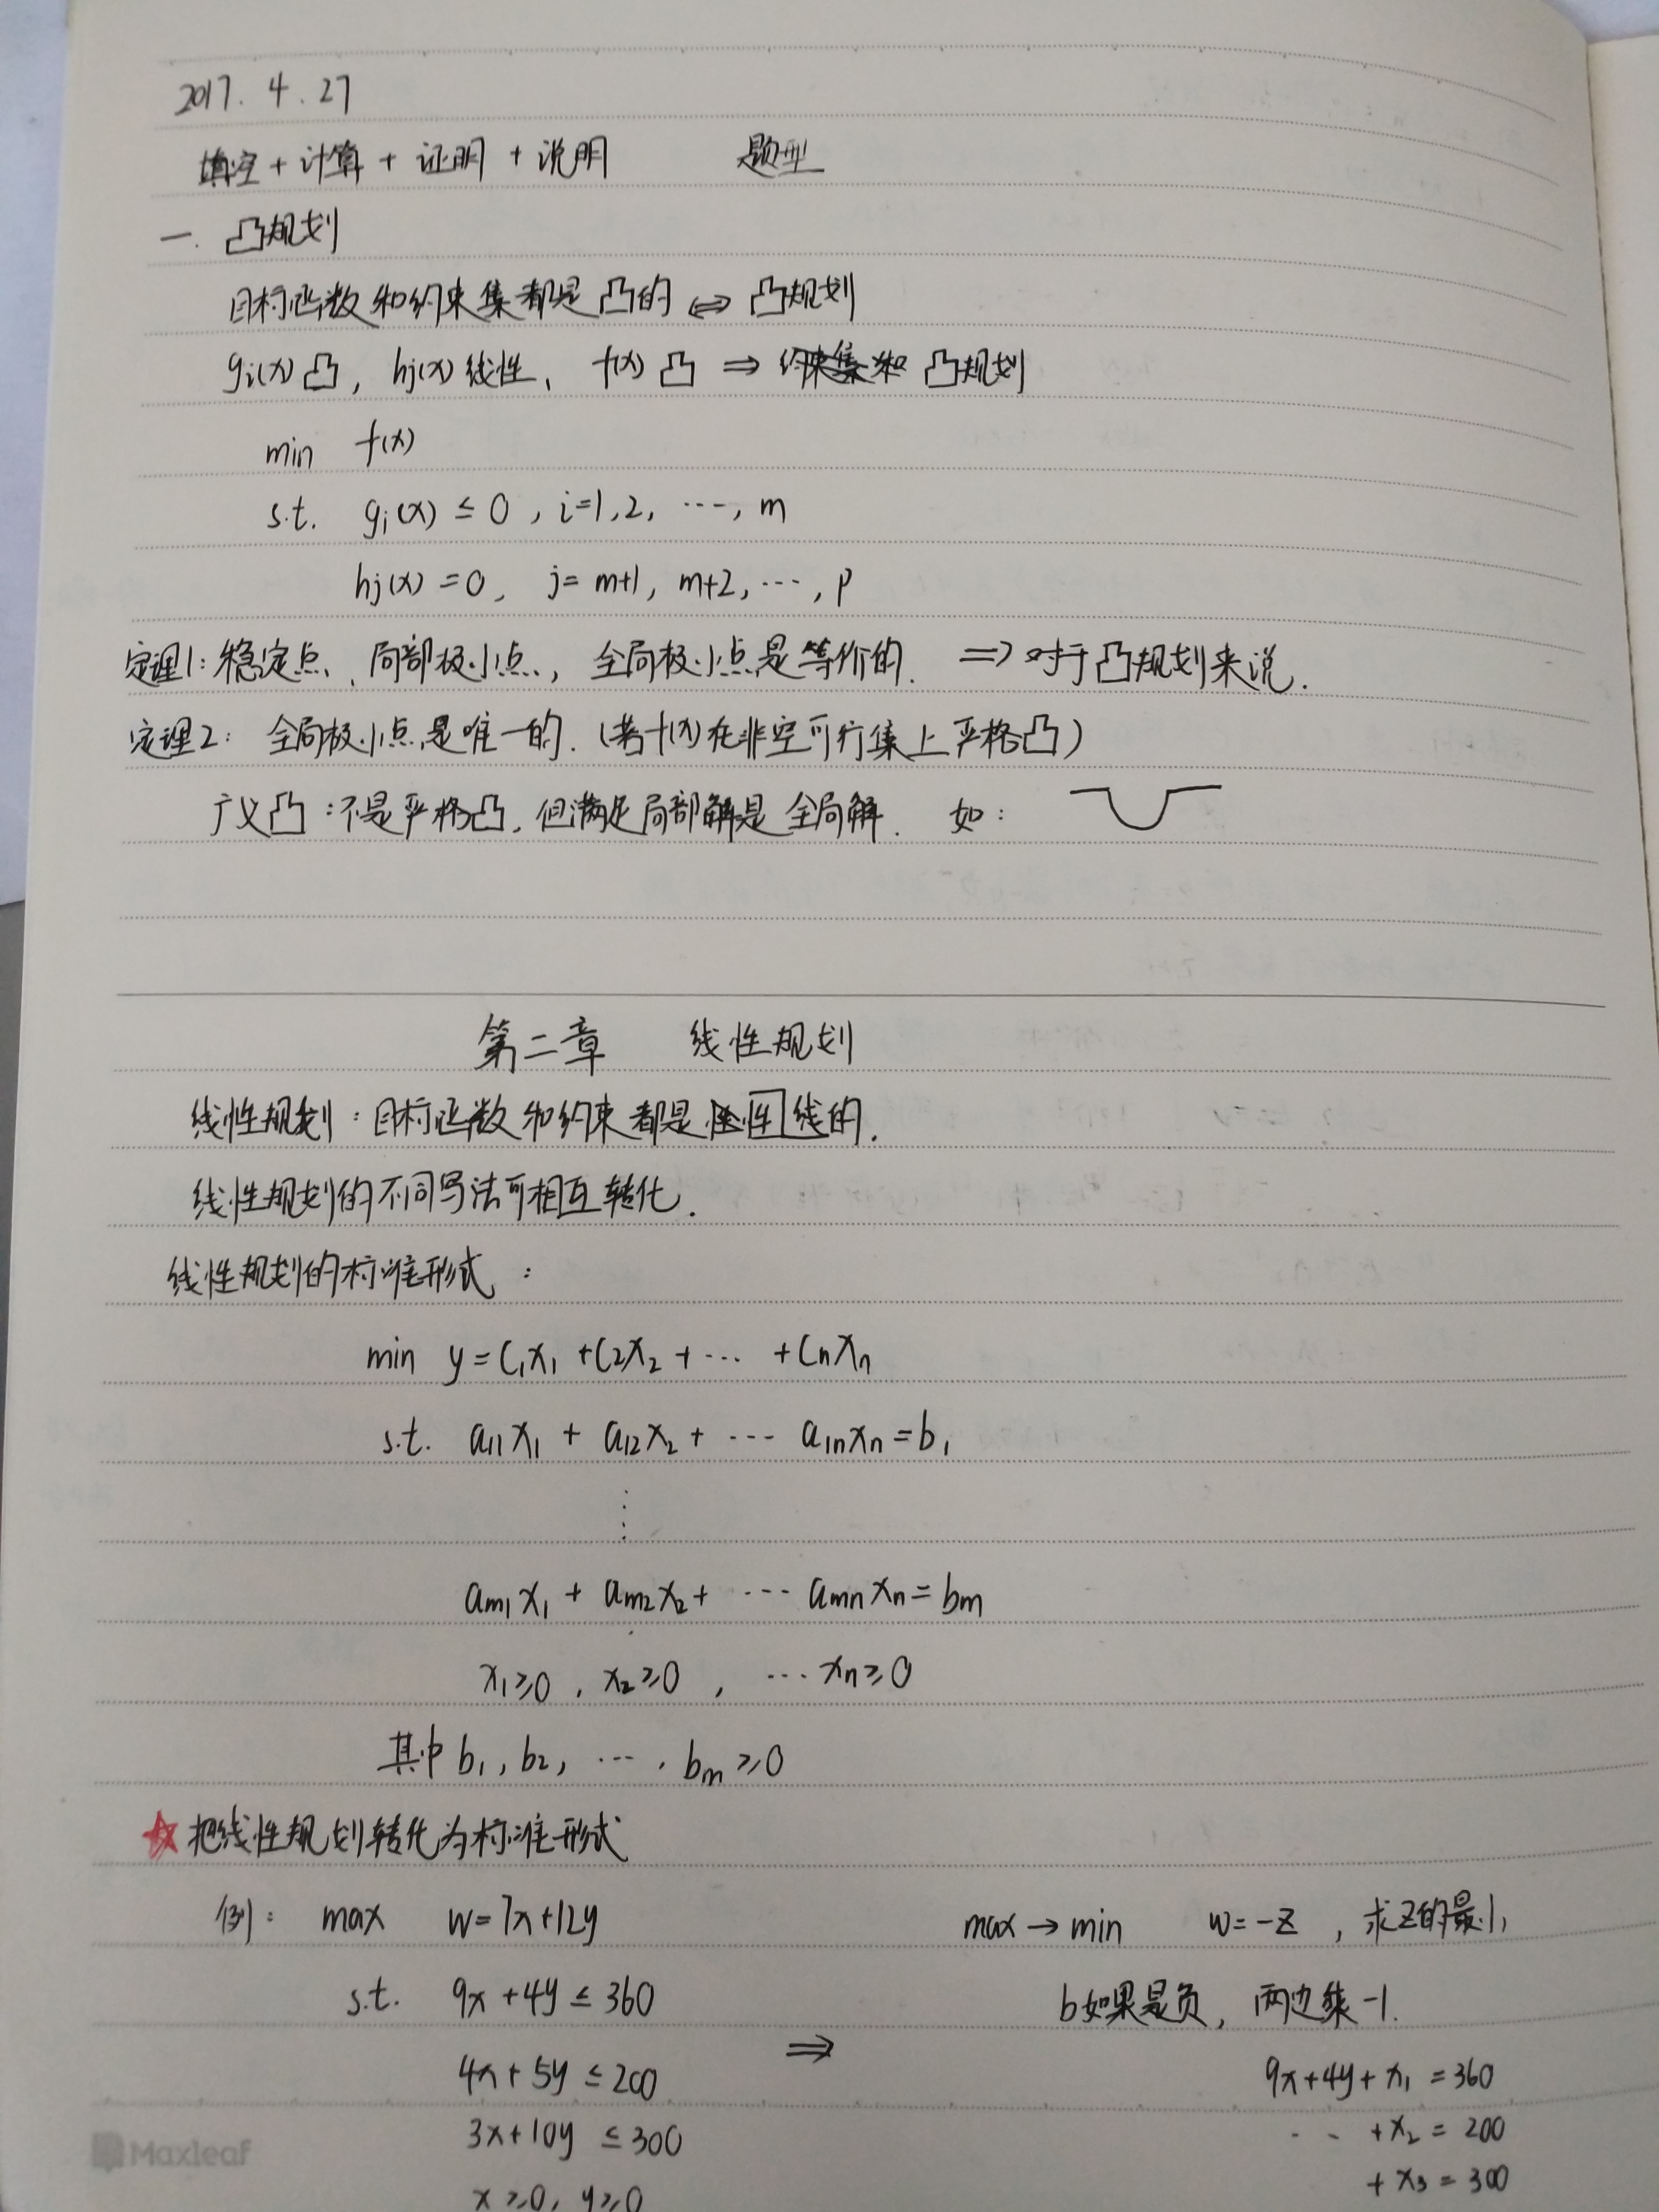 2017. 4. 27
填空 + 计算 + 证明 + 说明 题型
一. 凸规划
目标函数和约束集都是凸的 ⇔ 凸规划
gi(x) 凸, hj(x) 线性、 f(x) 凸 ⇒ 凸规划
min f(x)
s.t. gi(x) ≤ 0 , i=1,2, ···, m
hj(x) = 0, j= m+1, m+2, ···, p
定理1: 稳定点、局部极小点, 全局极小点是等价的. ⇒ 对于凸规划来说.
定理2: 全局极小点是唯一的. (若f(x)在非空可行集上严格凸)
广义凸: 不是严格凸, 但满足局部解是全局解. 如:
第二章 线性规划
线性规划: 目标函数和约束都是性线的.
线性规划的不同写法可相互转化.
线性规划的标准形式 :
min y = C1x1 + C2x2 + ··· + Cnxn
s.t. a11x1 + a12x2 + ··· a1nxn = b1
⋮
am1x1 + am2x2 + ··· amnxn = bm
x1≥0 , x2≥0 , ··· xn≥0
其中 b1, b2, ···. bm ≥0
☆ 把线性规划转化为标准形式
例: max w=7x+12y max → min w=-z , 求z的最小
s.t. 9x+4y ≤ 360 b如果是负, 两边乘-1.
4x+5y ≤ 200 ⇒ 9x+4y+x1 = 360
3x+10y ≤ 300 · · +x2 = 200
x≥0, y≥0 +x3 = 300
Maxleaf